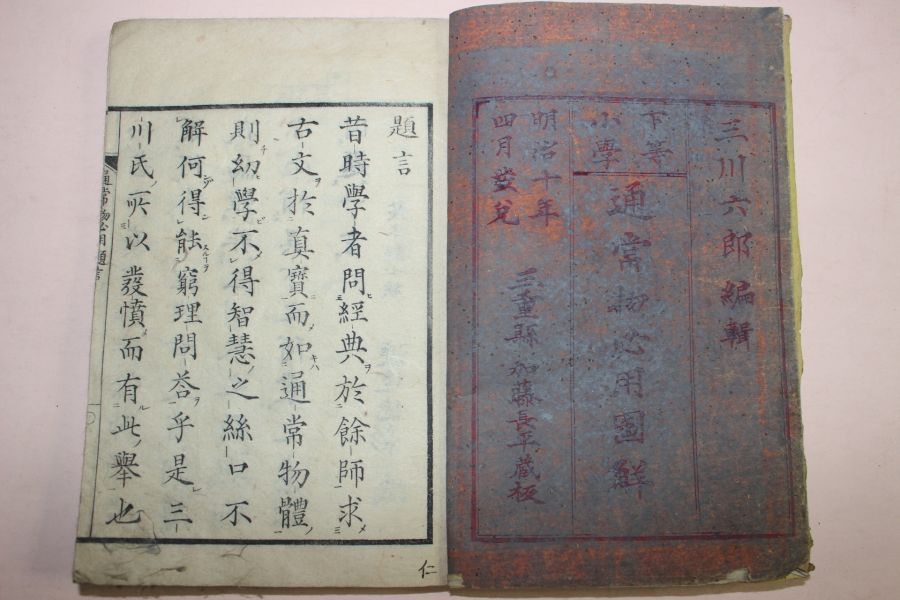 三川六郎編輯
下等
小學
通常物必用圖解
明治十年
四月發兌
三重縣 加藤長平藏板
題言
昔時學者問經典於餘師求
古文於真寶而如通常物體
則幼學不得智慧之絲口不
解何得能窮理問荅乎是三
川氏所以發憤而有此舉也
通常物必用題言
仁